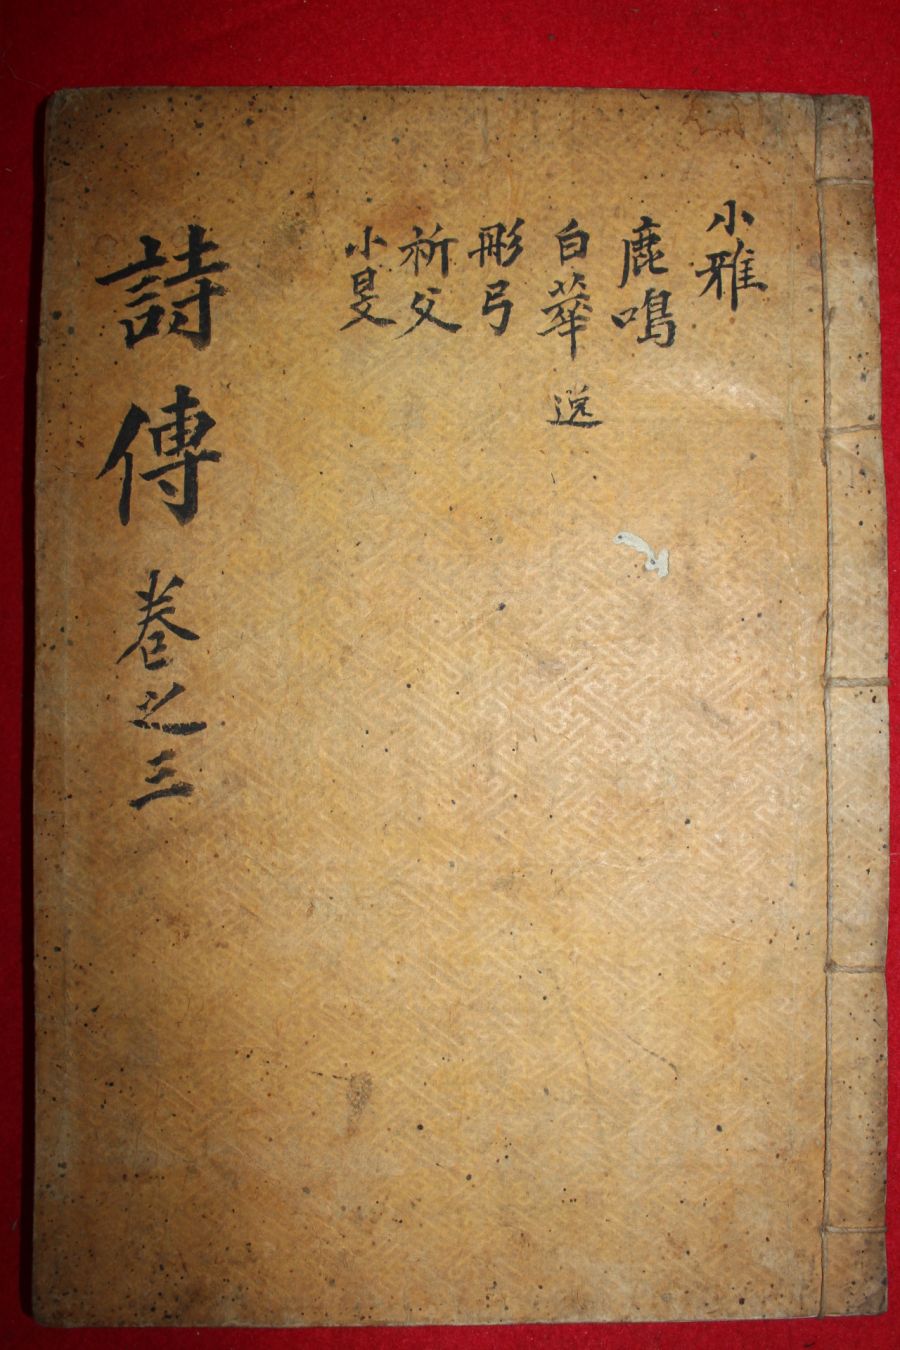 小雅
鹿鳴
白華 逸
彤弓
祈父
小旻
詩傳 卷之三